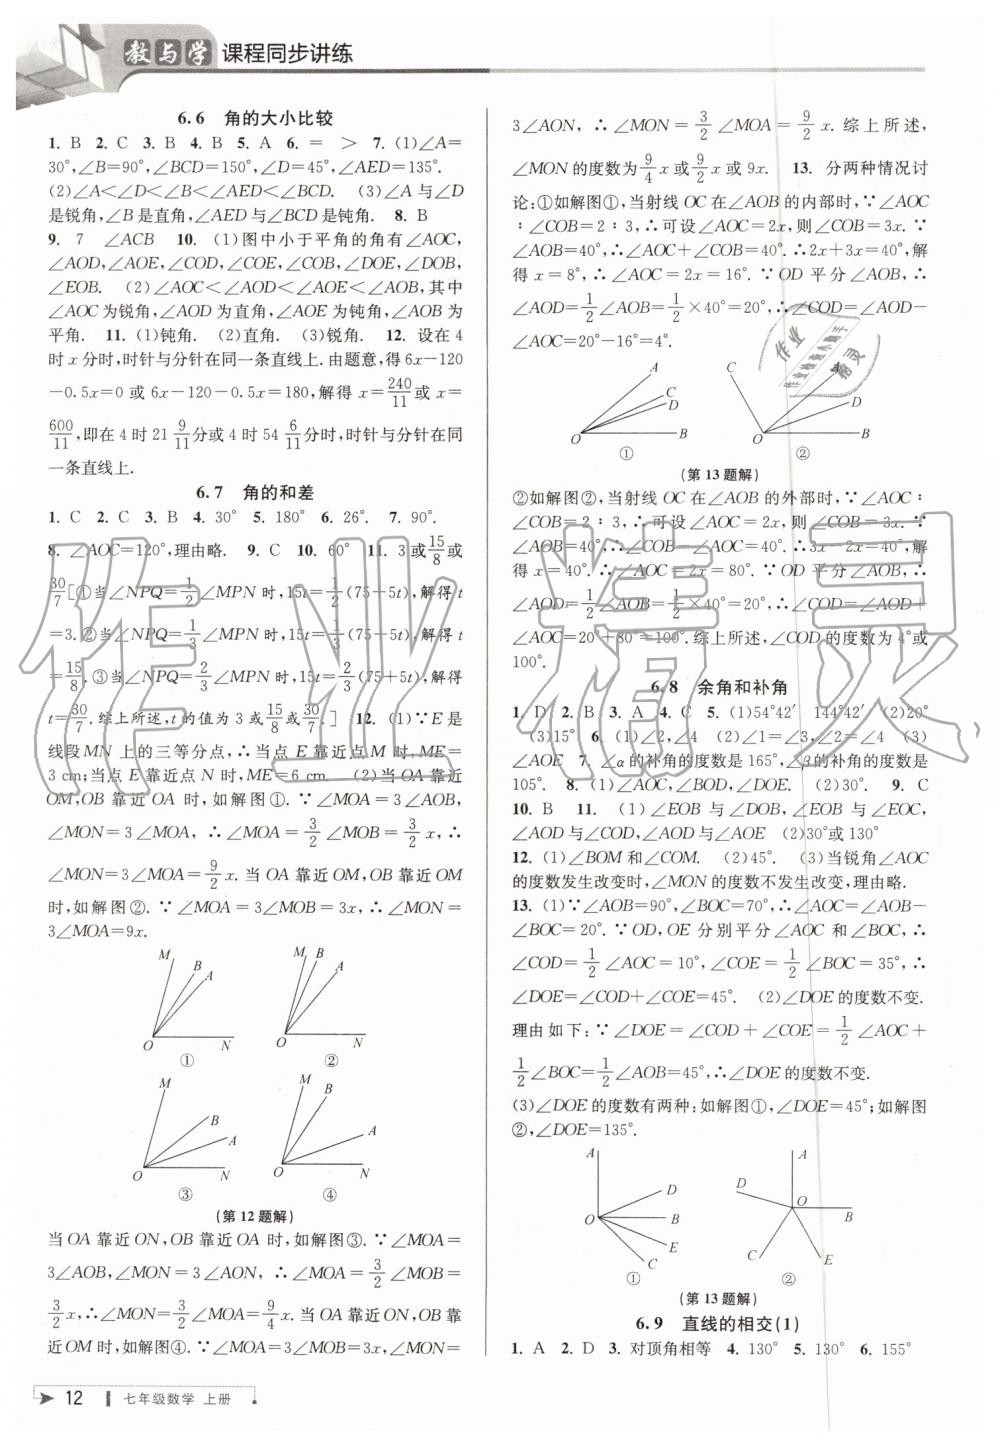 教与学 课程同步讲练
6.6 角的大小比较
1. B 2. C 3. B 4. B 5. A 6. = > 7. (1)∠A=
30°,∠B=90°,∠BCD=150°,∠D=45°,∠AED=135°.
(2)∠A<∠D<∠B<∠AED<∠BCD. (3)∠A与∠D
是锐角,∠B是直角,∠AED与∠BCD是钝角. 8. B
9. 7 ∠ACB 10. (1)图中小于平角的角有∠AOC,
∠AOD,∠AOE,∠COD,∠COE,∠COB,∠DOE,∠DOB,
∠EOB. (2)∠AOC<∠AOD<∠AOE<∠AOB,其中
∠AOC为锐角,∠AOD为直角,∠AOE为钝角,∠AOB为
平角. 11. (1)钝角. (2)直角. (3)锐角. 12. 设在4
时x分时,时针与分针在同一条直线上.由题意,得6x-120
-0.5x=0或6x-120-0.5x=180,解得x=240/11或x=
600/11,即在4时21 9/11分或4时54 6/11分时,时针与分针在同
一条直线上.
6.7 角的和差
1. C 2. C 3. B 4. 30° 5. 180° 6. 26°. 7. 90°.
8. ∠AOC=120°,理由略. 9. C 10. 60° 11. 3或15/8或
30/7[①当∠NPQ=1/2∠MPN时,15t=1/2(75+5t),解得t
=3.②当∠NPQ=1/3∠MPN时,15t=1/3(75+5t),解得t
=15/8.③当∠NPQ=2/3∠MPN时,15t=2/3(75+5t),解得
t=30/7.综上所述,t的值为3或15/8或30/7.] 12. (1)∵E是
线段MN上的三等分点,∴当点E靠近点M时,ME=
3 cm;当点E靠近点N时,ME=6 cm. (2)当OA靠近
OM,OB靠近OA时,如解图①.∵∠MOA=3∠AOB,
∠MON=3∠MOA,∴∠MOA=3/2∠MOB=3/2x,∴
∠MON=3∠MOA=9/2x.当OA靠近OM,OB靠近OM
时,如解图②.∵∠MOA=3∠MOB=3x,∴∠MON=
3∠MOA=9x.
M B A O N ①
M B A O N ②
M B A O N ③
M B A O N ④
(第12题解)
当OA靠近ON,OB靠近OA时,如解图③.∵∠MOA=
3∠AOB,∠MON=3∠AON,∴∠MOA=3/2∠MOB=
3/2x,∴∠MON=3/2∠MOA=9/4x.当OA靠近ON,OB靠
近OM时,如解图④.∵∠MOA=3∠MOB=3x,∠MON=
3∠AON,∴∠MON=3/2∠MOA=9/2x.综上所述,
∠MON的度数为9/4x或9/2x或9x. 13. 分两种情况讨
论:①如解图①,当射线OC在∠AOB的内部时,∵∠AOC
∶∠COB=2∶3,∴可设∠AOC=2x,则∠COB=3x.∵
∠AOB=40°,∴∠AOC+∠COB=40°.∴2x+3x=40°,解
得x=8°,∴∠AOC=2x=16°.∵OD平分∠AOB,∴
∠AOD=1/2∠AOB=1/2×40°=20°,∴∠COD=∠AOD-
∠AOC=20°-16°=4°.
A C D O B ①
C A D O B ②
(第13题解)
②如解图②,当射线OC在∠AOB的外部时,∵∠AOC∶
∠COB=2∶3,∴可设∠AOC=2x,则∠COB=3x.∵
∠AOB=40°,∴∠COB-∠AOC=40°.∴3x-2x=40°,解
得x=40°,∴∠AOC=2x=80°.∵OD平分∠AOB,∴
∠AOD=1/2∠AOB=1/2×40°=20°,∴∠COD=∠AOD+
∠AOC=20°+80°=100°.综上所述,∠COD的度数为4°或
100°.
6.8 余角和补角
1. D 2. B 3. A 4. C 5. (1)54°42′ 144°42′ (2)20°
(3)15° 6. (1)∠2,∠4 (2)∠1=∠3,∠2=∠4 (3)
∠AOE 7. ∠α的补角的度数是165°,∠β的补角的度数是
105°. 8. (1)∠AOC,∠BOD,∠DOE. (2)30°. 9. C
10. B 11. (1)∠EOB与∠DOB,∠EOB与∠EOC,
∠AOD与∠COD,∠AOD与∠AOE (2)30°或130°
12. (1)∠BOM和∠COM. (2)45°. (3)当锐角∠AOC
的度数发生改变时,∠MON的度数不发生改变,理由略.
13. (1)∵∠AOB=90°,∠BOC=70°,∴∠AOC=∠AOB-
∠BOC=20°.∵OD,OE分别平分∠AOC和∠BOC,∴
∠COD=1/2∠AOC=10°,∠COE=1/2∠BOC=35°,∴
∠DOE=∠COD+∠COE=45°. (2)∠DOE的度数不变.
理由如下:∵∠DOE=∠COD+∠COE=1/2∠AOC+
1/2∠BOC=1/2∠AOB=45°,∴∠DOE的度数不变.
(3)∠DOE的度数有两种:如解图①,∠DOE=45°;如解图
②,∠DOE=135°.
A D O B E C ①
A D O B C E ②
(第13题解)
6.9 直线的相交(1)
1. A 2. D 3. 对顶角相等 4. 130° 5. 130° 6. 155°
12 七年级数学 上册
作业精灵
作业
精灵